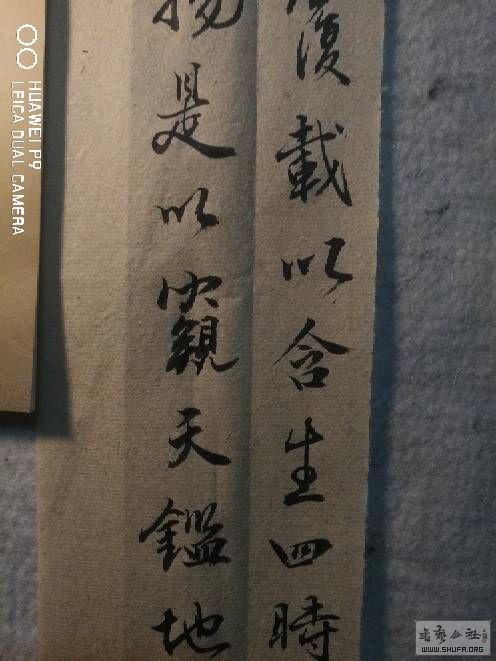 覆載以含生四時
物是以窺天鑑地
HUAWEI P9
LEICA DUAL CAMERA
書藝公社
WWW.SHUFA.ORG